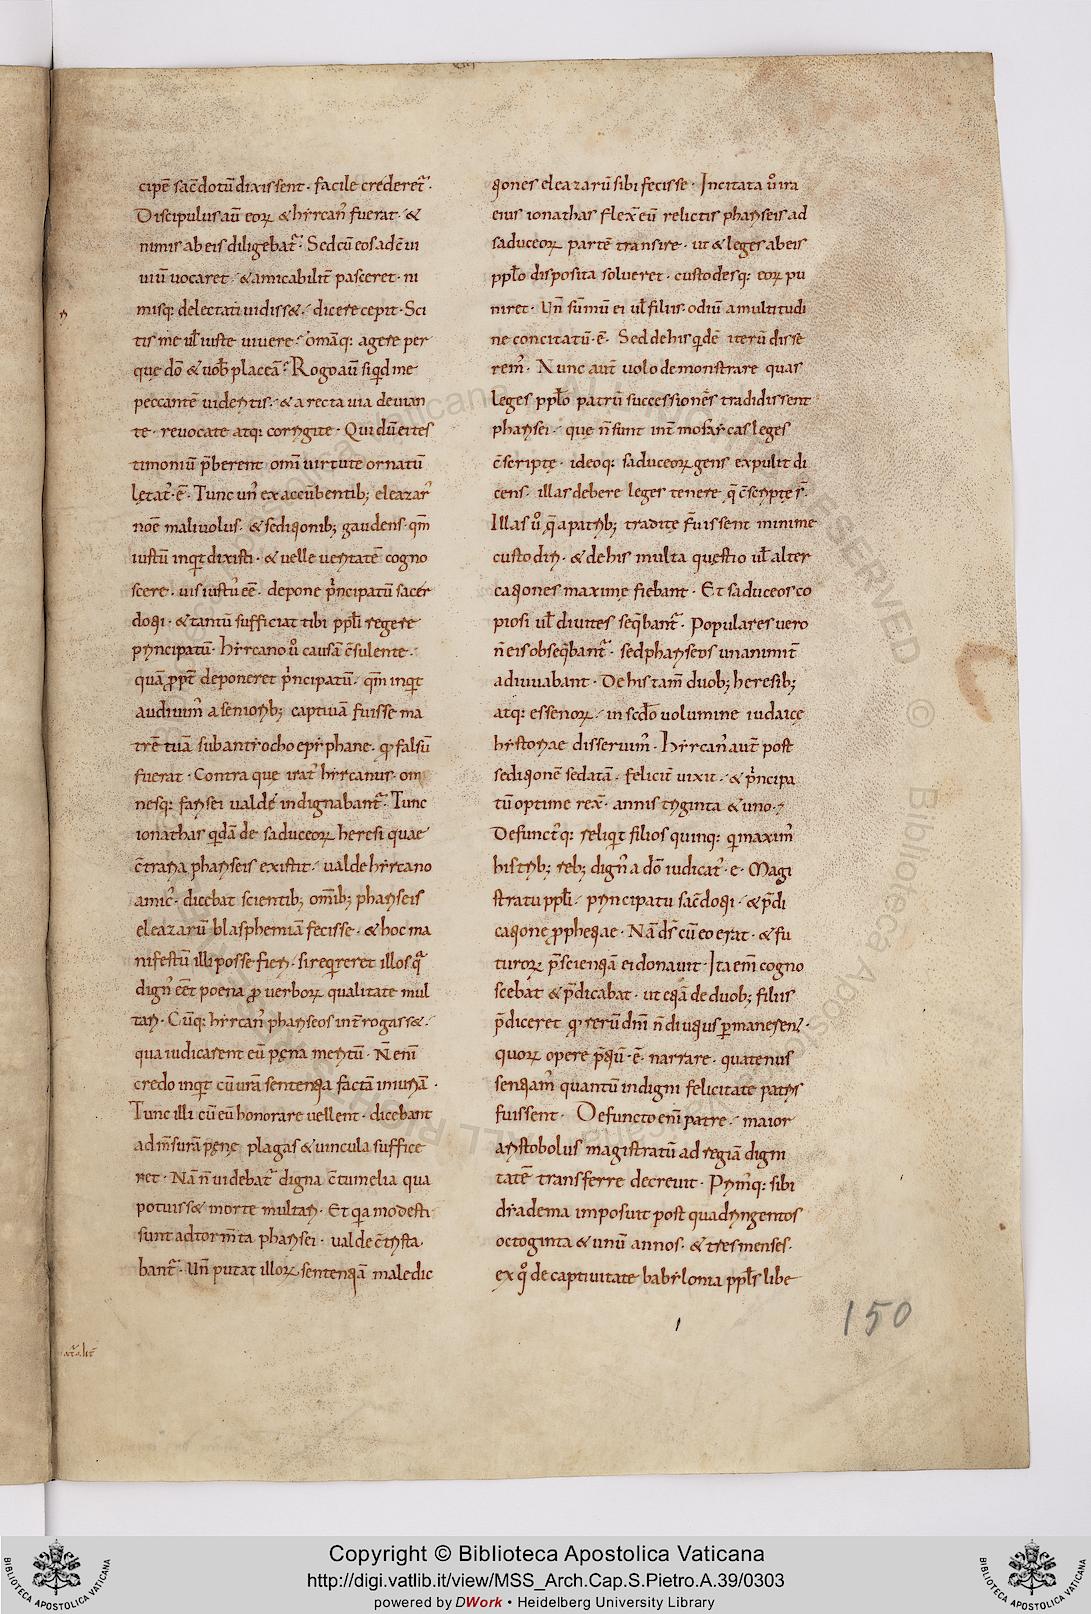 cipē sac̄dotū dixissent · facile crederet᷑ ·
Discipulus aū eoꝝ & hircan᷒ fuerat · &
nimis ab eis diligebat᷑ · Sed cū eos ad c̄ui
uiū uocaret · & amicabilit̄ pasceret · ni
misq: delectati uidiss& · dicere cepit · Sci
tis me ul̄ iuste uiuere · om̄aq: agere per
que dō & uob̄ placeā᷑ · Rogo aū siqd me
peccantē uidetis · & a recta uia deuian
te · reuocate atq: corrigite · Qui dū ei tes
timoniū p̄berent om̄i uirtute ornatū
lętat᷒ · ē · Tunc un᷒ ex accūbentib; eleazar᷒
noē maliuolus · & seditionib; gaudens · qm̄
iustū inqt dixisti · & uelle ueritatē cogno
scere · uis iust᷒ eē · depone p̍ncipatū sacer
dotii · & tantū sufficiat tibi ppl̄i regere
principatū · hircano u̍o causā c̄sulente ·
quā ꝓpt̄ deponeret p̍ncipatū · qm̄ inqt
audiuim᷒ aseniorib; captiuā fuisse ma
trē tuā sub antiocho epiphane · qđ falsū
fuerat · Contra que irat᷒ hircanus · om
nesq: farisei ualde indignabant᷑ · Tunc
ionathas qdā de saduceoꝝ heresi quae
c̄traria phariseis existit · ualde hircano
amic᷒ · dicebat scientib; om̄ib; phariseis
eleazarū blasphemiā fecisse · & hoc ma
nifestū illi posse fieri · si reqreret illos q̍
dign᷒ eēt poena ꝓ uerboꝝ qualitate mul
tari · Cūq: hircan᷒ phariseos int̄rogass& ·
qua iudicarent eū pęna meritū · N̄ eni̅
credo inqt cū ur̄am sententia factā iniuriā ·
Tunc illi cū eū honorare uellent · dicebant
ad m̄surā pęnę plagas & uincula suffice
ret · Nā n̄ uidebat᷑ digna c̄tumelia qua
potuiss& morte multari · Et qa modesti
sunt ad torm̄ta pharisei · ualde c̄trista
bant᷑ · Un̄ putat illoꝝ sententiā maledic
tiones eleazarū sibi fecisse · Incitata u̍o ira
eius ionathas flex̄ eū relictis phariseis ad
saduceoꝝ partē transire · ut & leges ab eis
ppl̄o disposita solueret · custodesq: eoꝝ pu
niret · Un̄ sūmū ei ul̄ filiis · odiū a multitudi
ne concitatū · ē · Sed de his qdē iterū disse
rem᷒ · Nunc aut̄ uolo demonstrare quas
leges ppl̄o patrū successiones tradidissent
pharisei · que n̄ sunt int̄ mosaicas leges
c̄scripte · ideoq: saduceoꝝ gens expulit di
cens · illas debere leges tenere q̄ c̄scripte s̄ ·
Illas u̍o q̄ a patrib; tradite fuissent minime
custodiri · & de his multa questio ul̄ alter
cationes maxime fiebant · Et saduceos co
piosi ul̄ diuites seqbant᷑ · Populares uero
n̄ eis obseqbant᷑ · sed phariseos unanimit̄
adiuuabant · De his tam̄ duob; heresib;
atq: essenoꝝ · in scdo uolumine iudaice
historiae disseruim᷒ · Hircan᷒ aut̄ post
seditionē sedatā · felicit̄ uixit · & p̍ncipa
tū optime rex̄ · annis triginta & uno ·
Defunct᷒q: reliqt filios quinq: q maxim᷒
his trib; reb; dign᷒ a dō iudicat᷒ · e · Magi
stratu ppl̄i · principatu sac̄dotii · & p̄di
catione ꝓphetiae · Nā dš cū eo erat · & fu
turoꝝ p̄scientiā ei donauit · Ita em̄ cogno
scebat & p̄dicabat · ut etiā de duob; filiis
p̄diceret qđ rerū dn̄i n̄ diutius ꝑmaneren̄ ·
quoꝝ opere p̄tiū · ē · narrare · quatenus
sentiam᷒ quantū indigni felicitate patris
fuissent · Defuncto eni̅ patre · maior
aristobolus magistratū ad regiā digni
tatē transferre decreuit · Prim᷒q: sibi
diadema imposuit post quadringentos
octoginta & unū annos · & tres menses ·
ex quo de captiuitate babilonia ppl̄s libe
150
Copyright © Biblioteca Apostolica Vaticana
http://digi.vatlib.it/view/MSS_Arch.Cap.S.Pietro.A.39/0303
powered by DWork • Heidelberg University Library